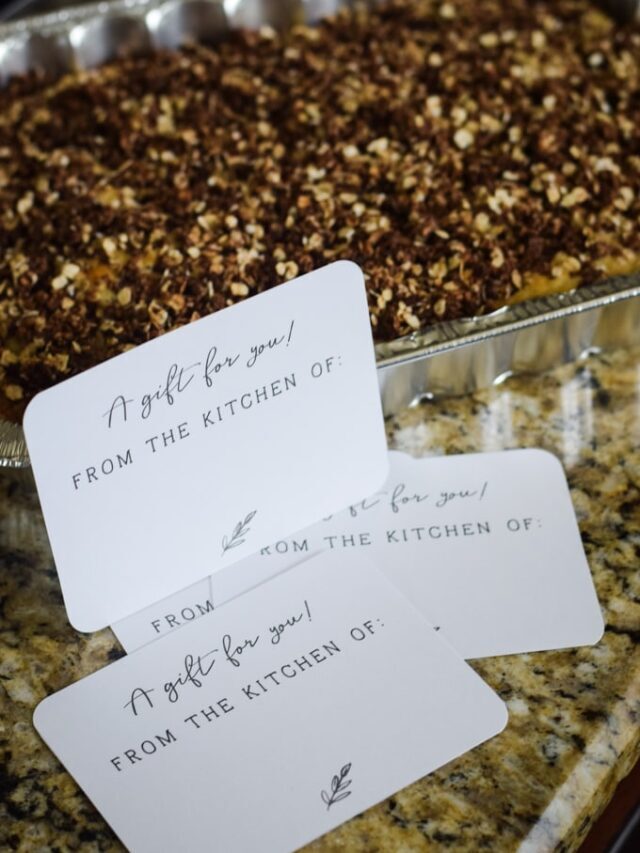 A gift for you!
FROM THE KITCHEN OF:
for you!
THE KITCHEN OF:
FROM
A gift for you!
FROM THE KITCHEN OF: